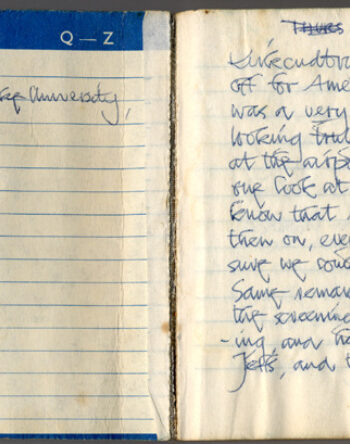 Q — Z
University,
THURS
off for Ame
was a very
looking
at the airpo
one look at
know that
then on, eve
sure we cou
Same remar
the screenin
-ing, and ha
Jeff, and t